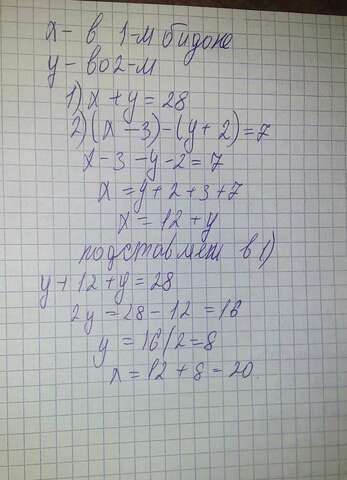 х - в 1-м бидоне
у - во 2-м
1) х + у = 28
2) (х - 3) - (у + 2) = 7
х - 3 - у - 2 = 7
х = у + 2 + 3 + 7
х = 12 + у
подставляем в 1)
у + 12 + у = 28
2у = 28 - 12 = 16
у = 16/2 = 8
х = 12 + 8 = 20.